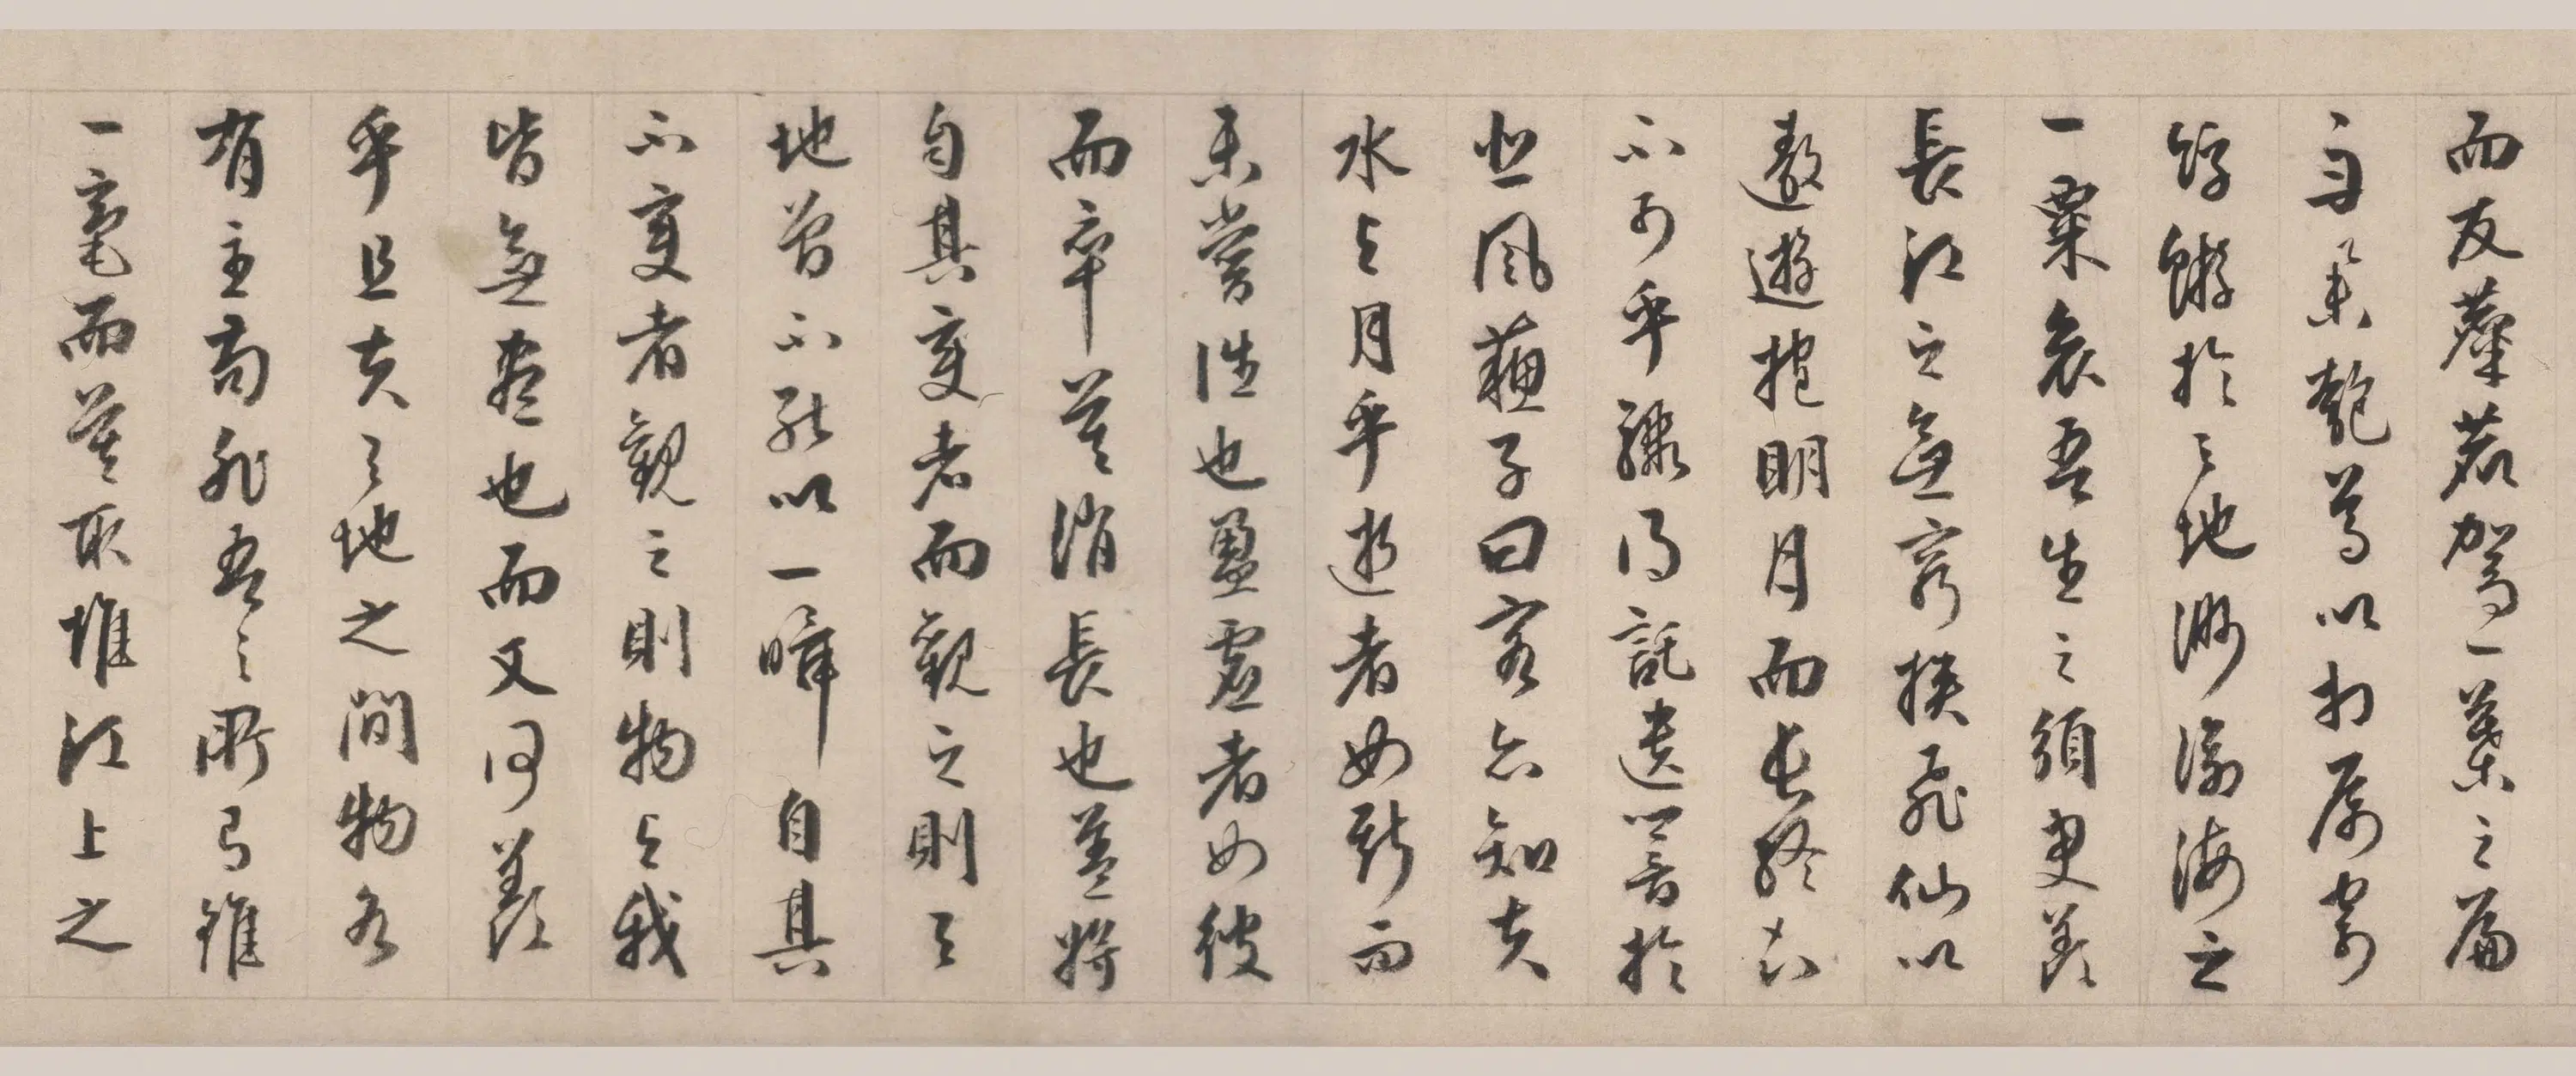 而友麋鹿駕一葉之扁
舟舉匏尊以相屬寄
蜉蝣於天地渺滄海之
一粟哀吾生之須臾羨
長江之無窮挾飛仙以
遨遊抱明月而長終知
不可乎驟得託遺響於
悲風蘇子曰客亦知夫
水與月乎逝者如斯而
未嘗往也盈虛者如彼
而卒莫消長也蓋將
自其變者而觀之則天
地曾不能以一瞬自其
不變者觀之則物與我
皆無盡也而又何羨
乎且夫天地之間物各
有主苟非吾之所有雖
一毫而莫取惟江上之